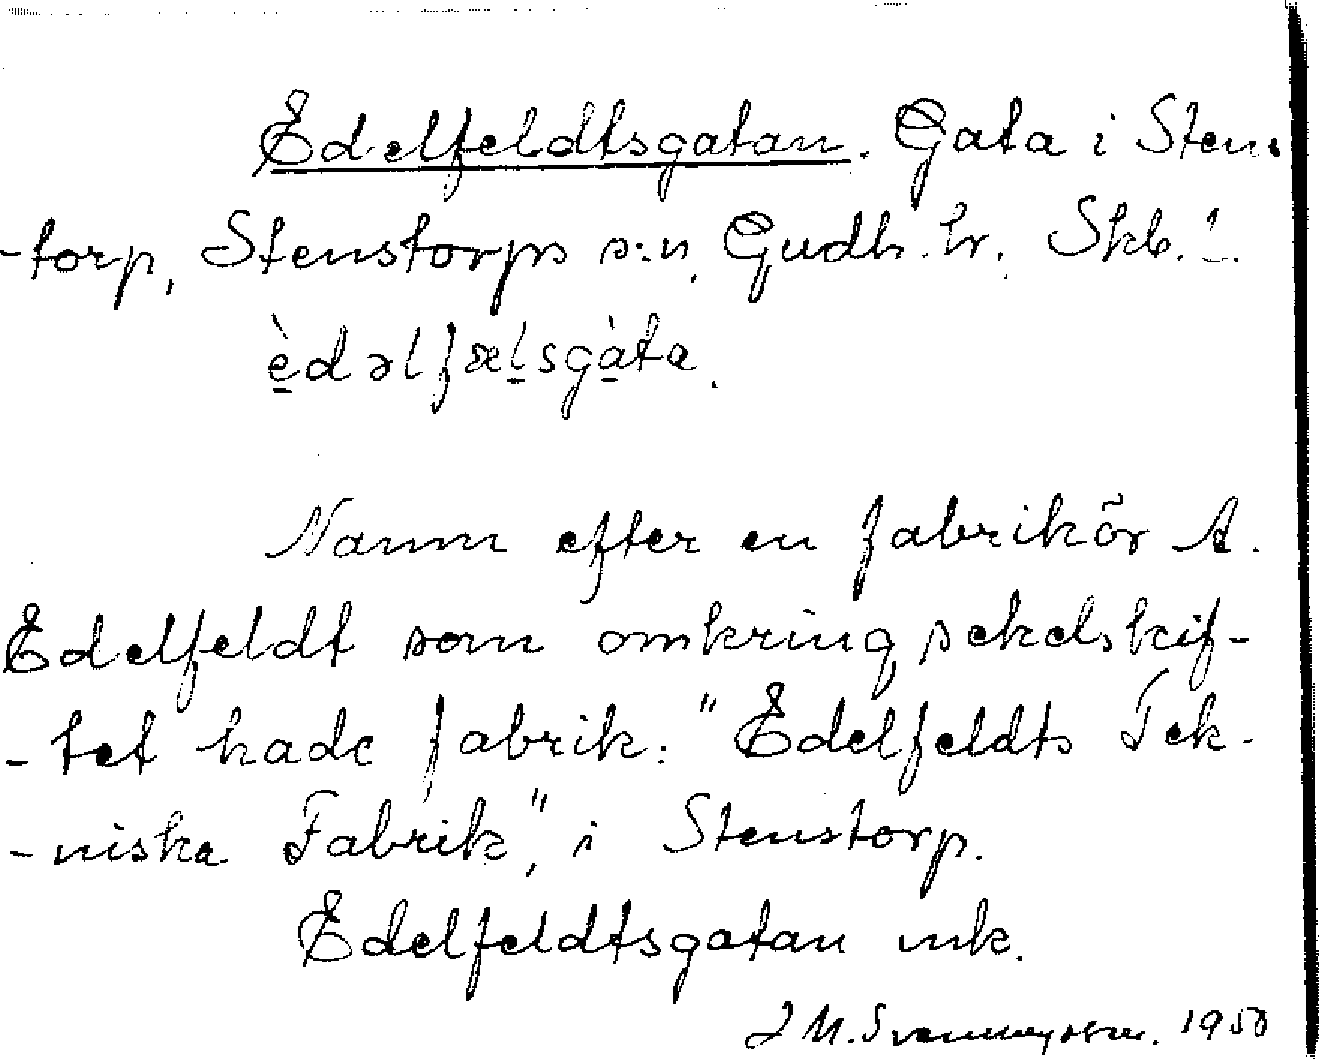 Edelfeldtsgatan. Gata i Stens
-torp, Stenstorps s:n, Gudh. hr. Skb. l.
èdəlfælsgàta.
Namn efter en fabrikör A.
Edelfeldt som omkring sekelskif-
-tet hade fabrik: "Edelfeldts Tek-
-niska Fabrik", i Stenstorp.
Edelfeldtsgatan mk.
1950